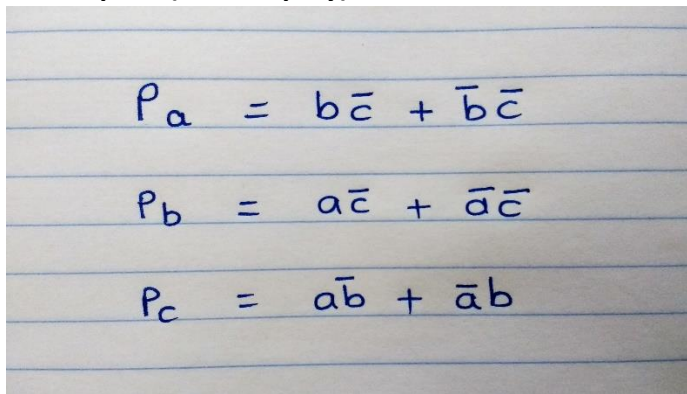 Pa = bc̅ + b̅c̅
Pb = ac̅ + a̅c̅
Pc = ab̅ + a̅b